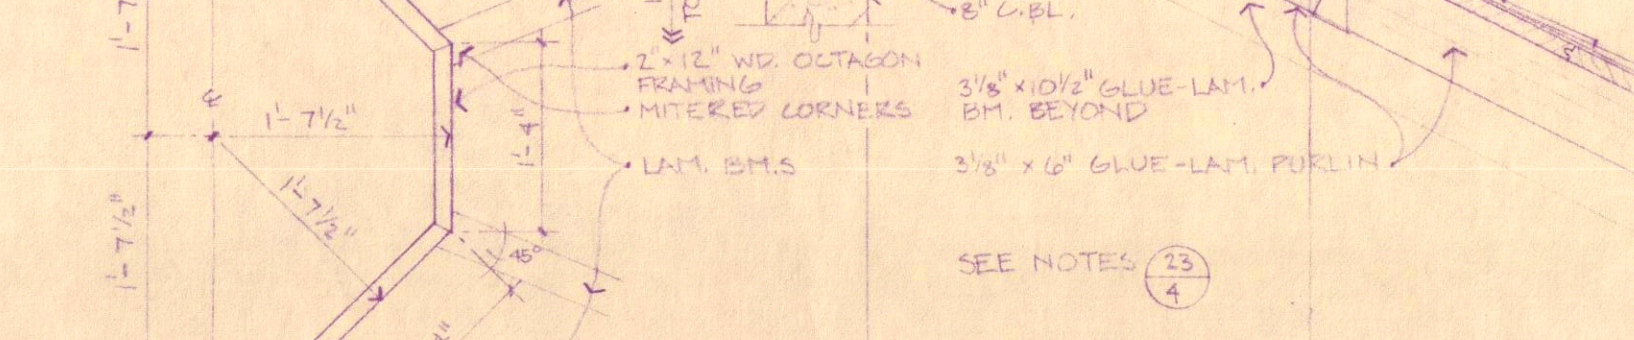 8" C.BL.
2"x12" WD. OCTAGON
FRAMING
MITERED CORNERS
LAM. BM.S
3 1/8" x 10 1/2" GLUE-LAM.
BM. BEYOND
3 1/8" x 6" GLUE-LAM. PURLIN
SEE NOTES 23
4
℄
1'-7 1/2"
1'-4"
1'-7 1/2"
1'-7 1/2"
45°